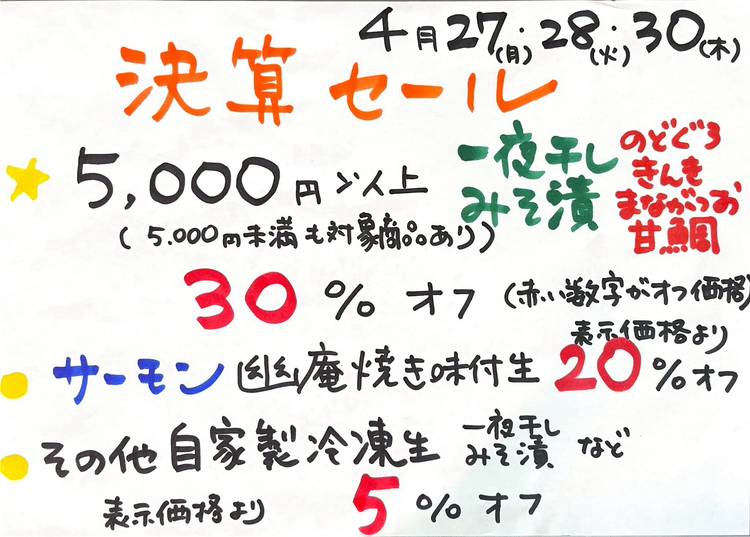 4月27(月)・28(火)・30(木)
決算セール
★5,000円以上
一夜干し
みそ漬
のどぐろ
きんき
まながつお
甘鯛
(5.000円未満も対象商品あり)
30%オフ
(赤い数字がオフ価格)
表示価格より
サーモン幽庵焼き味付生 20%オフ
その他自家製冷凍生
一夜干し
みそ漬
など
表示価格より 5%オフ